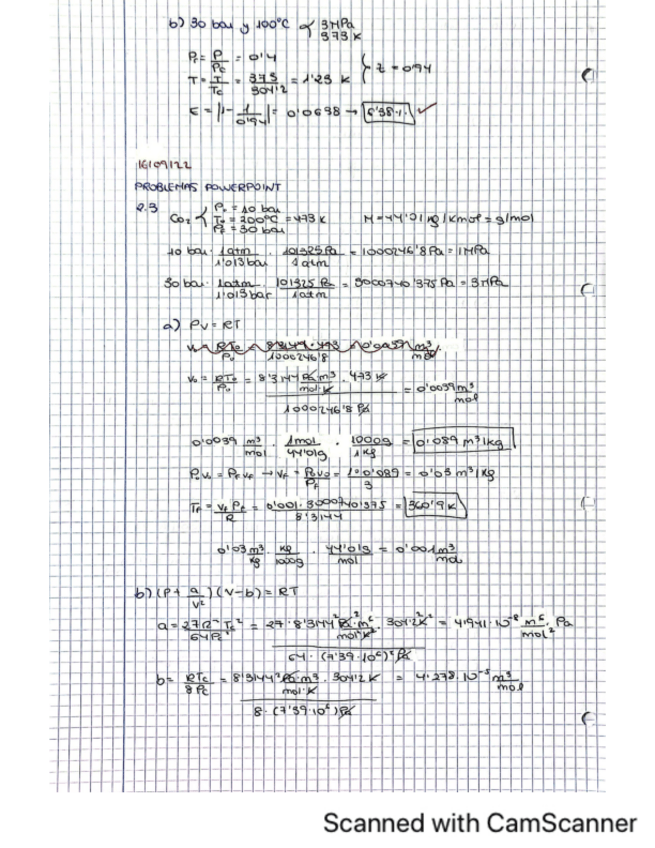 b) 30 bar y 100°C < 3MPa
373 K
Pr = P/Pc = 0'4
T = T/Tc = 373/304'2 = 1'23 K } z = 0'94
ε = |1 - 1/0'94| = 0'0638 → 6'38%
16/09/22
PROBLEMAS POWERPOINT
2.3
CO₂ { P₀ = 10 bar
T₀ = 200°C = 473 K M = 44'01 kg/kmol = g/mol
Pf = 30 bar
10 bar · 1atm/1'013bar · 101325 Pa/1atm = 1000246'8 Pa = 1MPa
30 bar · 1atm/1'013bar · 101325 Pa/1atm = 3000740'375 Pa = 3MPa
a) PV = RT
v₀ = RT₀/P₀ = 8'3144 · 473/1000246'8 = 0'0039 m³/mol
v₀ = RT₀/P₀ = 8'3144 Pa m³/mol·K · 473 K / 1000246'8 Pa = 0'0039 m³/mol
0'0039 m³/mol · 1mol/44'01g · 1000g/1kg = 0'089 m³/kg
P₀V₀ = PfVf → Vf = P₀V₀/Pf = 1·0'089/3 = 0'03 m³/kg
Tf = Vf Pf/R = 0'001 · 3000740'375/8'3144 = 360'9 K
0'03 m³/kg · kg/1000g · 44'01g/mol = 0'001 m³/mol
b) (P + a/V²)(V-b) = RT
a = 27R²Tc²/64Pc = 27 · 8'3144² Pa²·m⁶/mol²·K² · 304'2K² / 64 · (7'39·10⁶)² Pa = 4'941·10⁻⁸ m⁶/mol² · Pa
b = RTc/8Pc = 8'3144 Pa·m³/mol·K · 304'2 K / 8 · (7'39·10⁶) Pa = 4'278·10⁻⁵ m³/mol
Scanned with CamScanner